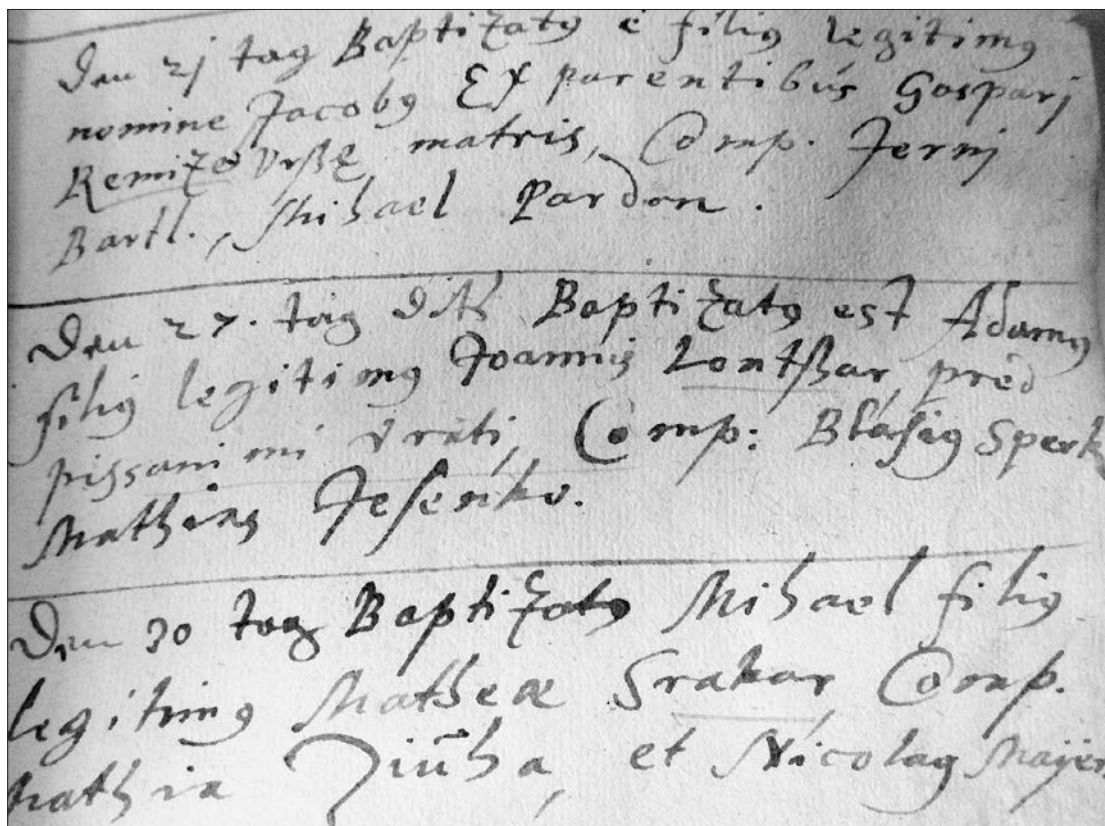 Den 21 tag Baptizatus e filius legitimus
nomine Jacobus Ex parentibus Gasparj
Remize Vrßę matris, Comp. Jernj
Bartl., Mihael Pardon.
Den 27. tag dits Baptizatus est Adamus
filius legitimus Joannis Lontßar, pred
pissani mi vrati, Comp: Blasius Sperk
Mathias Jesenko.
Den 30 tag Baptizatus Mihael filius
legitimus Matheæ Srakar, Comp.
Mathia Ziuha, et Nicolaus